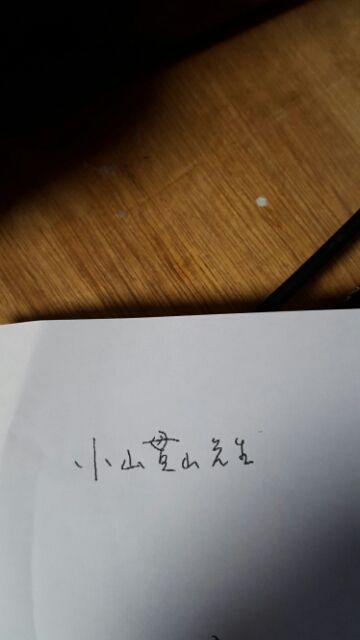 小山貫山先生